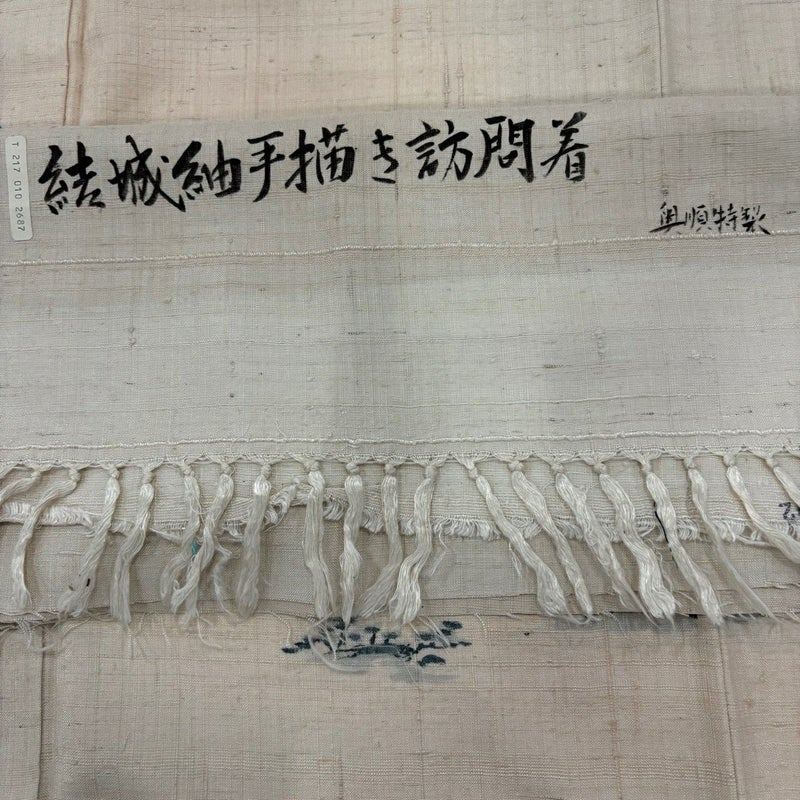 結城紬手描き訪問着
奥順特製
T 217 010 2687